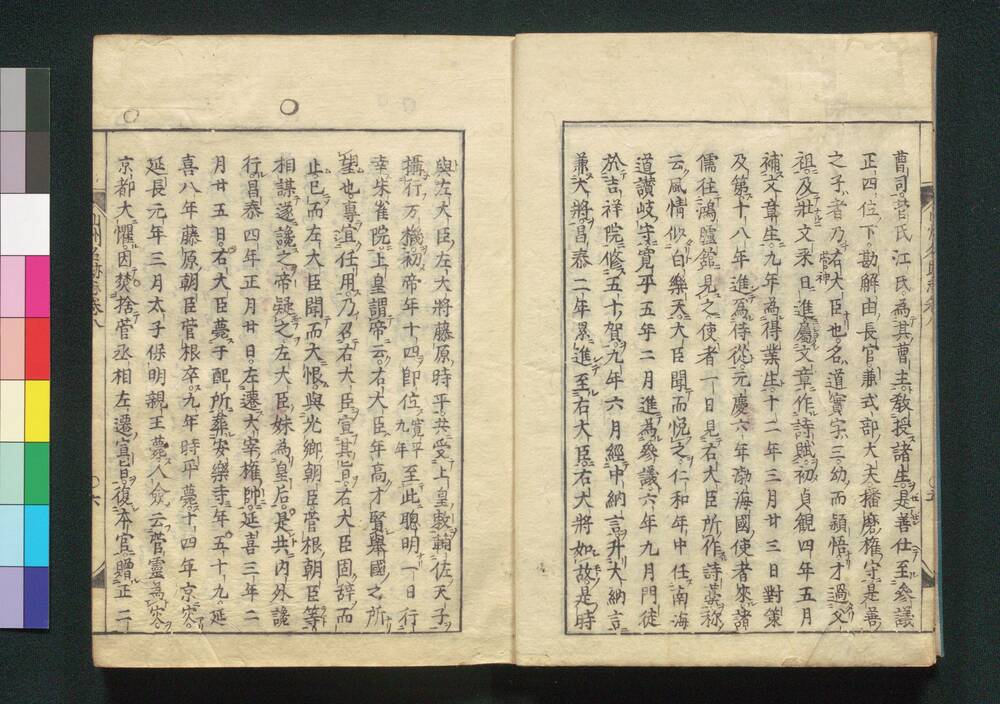 曹司菅氏江氏為其曹主教授諸生是善仕至參議
正四位下勘解由長官兼式部大夫播磨権守是善
之子者乃菅神右大臣也名道實字三幼而頴悟才過父
祖及壯文釆日進屬文章作詩賦初貞観四年五月
補文章生九年為得業生十二年三月廿三日對策
及第十八年進為侍從元慶六年渤海國使者來諸
儒往鴻臚館見之使者一日見右大臣所作詩藁称
云風情似白樂天大臣聞而悦之仁和年中任南海
道讃岐守寛平五年二月進為參議六年九月門徒
於吉祥院修五十賀九年六月經中納言升大納言
兼大將昌泰二年累進至右大臣右大將如故是時
與左大臣左大將藤原時平共受上皇敕輔佐天子
攝行万機初帝年十四即位寛平九年至此聰明一日行
幸朱雀院上皇謂帝云右大臣年高才賢擧國之所
望也專宜任用乃召右大臣宣其旨右大臣固辞而
止已而左大臣聞而大恨與光卿朝臣菅根朝臣等
相謀遂讒之帝疑之左大臣妹為皇后是共内外讒
行昌泰四年正月廿日左遷大宰権帥延喜三年二
月廿五日右大臣薨于配所葬安樂寺年五十九延
喜八年藤原朝臣菅根卒九年時平薨十四年京災
延長元年三月太子保明親王薨人僉云菅靈為灾
京都大懼因焚捨菅丞相左遷宣旨復本官贈正二
山州名跡志卷八
〇六